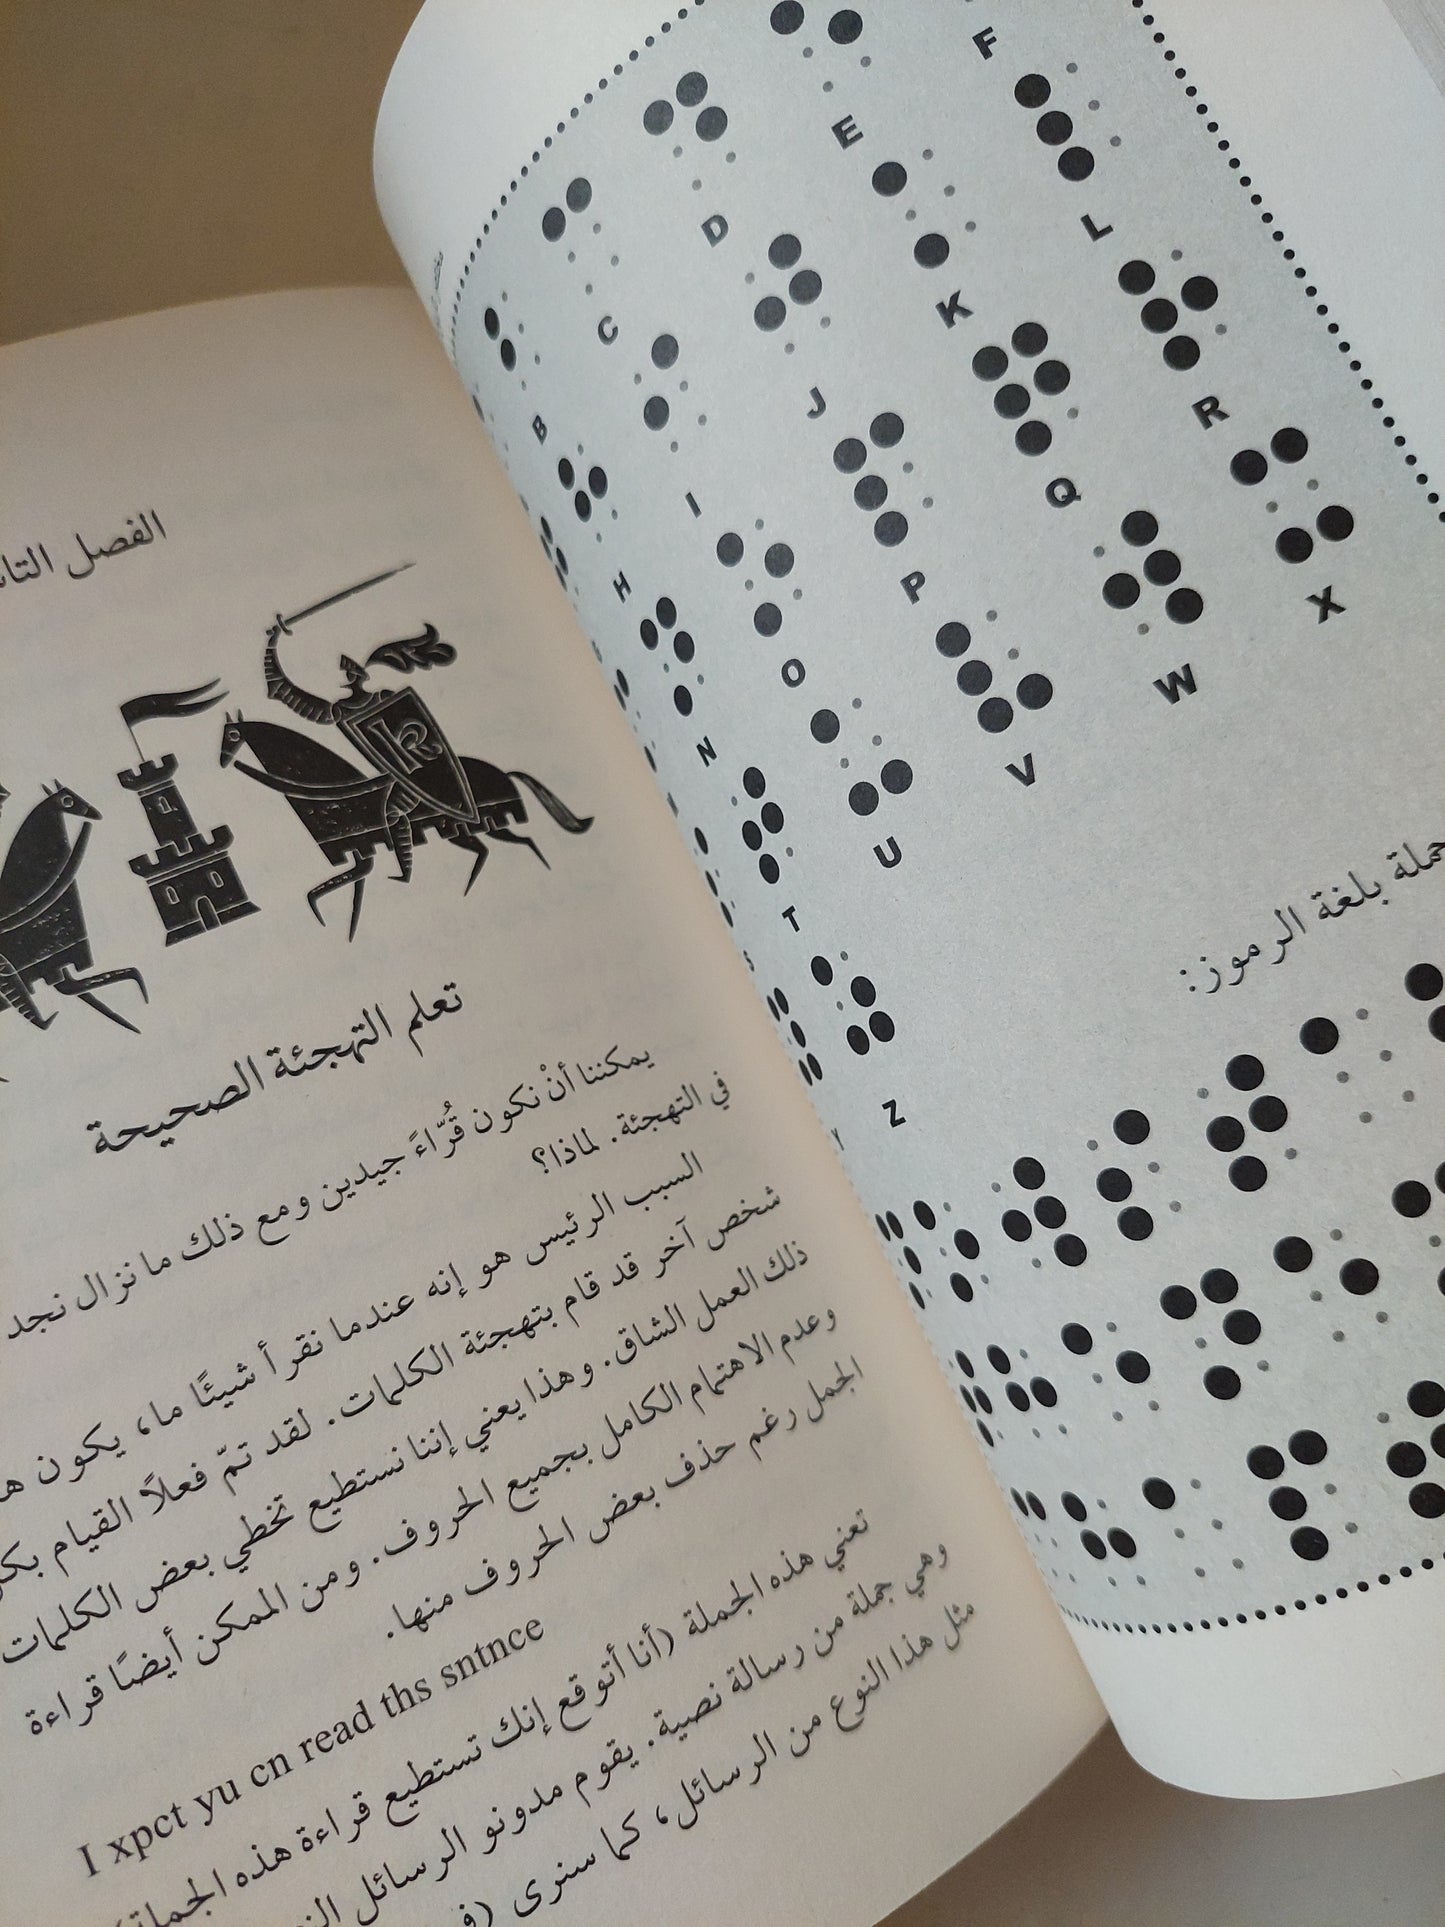 الفصل
تعلم التهجئة الصحيحة
يمكننا أنْ نكون قُرّاءً جيدين ومع ذلك ما نزال نجد
في التهجئة. لماذا؟
السبب الرئيس هو إنه عندما نقرأ شيئًا ما، يكون
شخص آخر قد قام بتهجئة الكلمات. لقد تمّ فعلاً القيام
ذلك العمل الشاق. وهذا يعني إننا نستطيع تخطي بعض الكلمات
وعدم الاهتمام الكامل بجميع الحروف. ومن الممكن أيضًا قراءة
الجمل رغم حذف بعض الحروف منها.
I xpct yu cn read ths sntnce
تعني هذه الجملة (أنا أتوقع إنك تستطيع قراءة هذه الجملة)
وهي جملة من رسالة نصية. يقوم مدونو الرسائل
مثل هذا النوع من الرسائل، كما سنرى
B C D E F
H I J K L
N O P Q R
S T U V W X
Y Z
جملة بلغة الرموز: